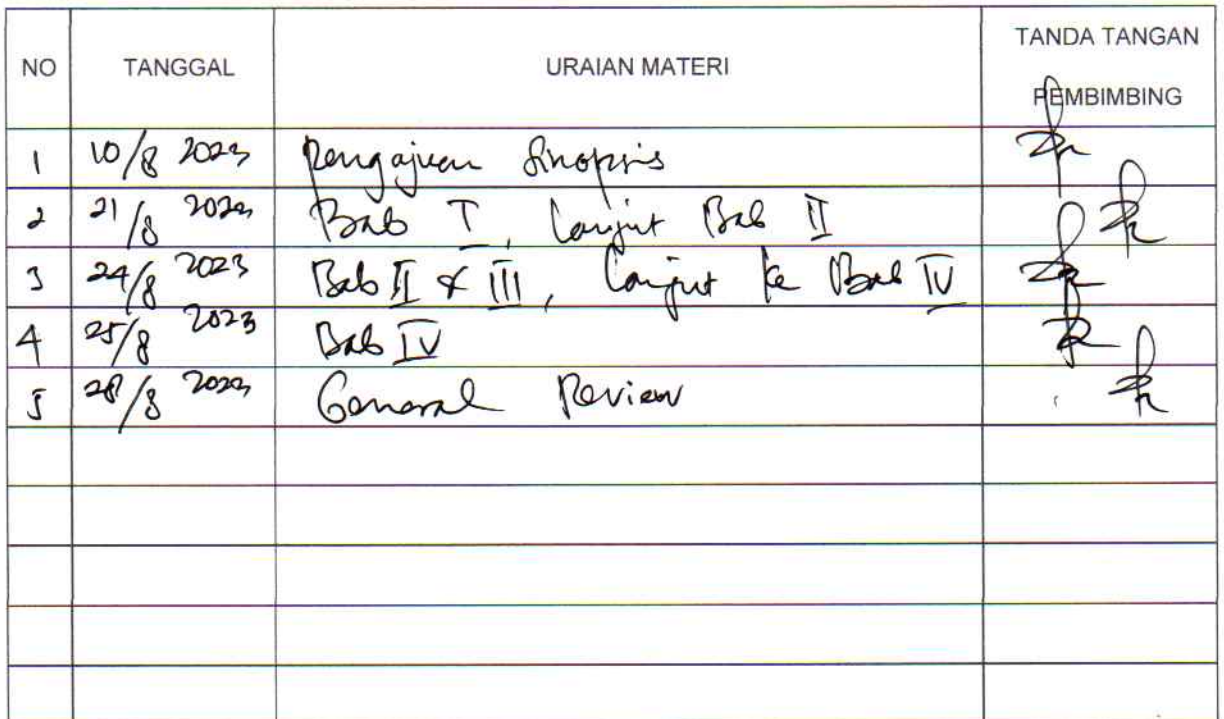 NO TANGGAL URAIAN MATERI TANDA TANGAN PEMBIMBING
1 10/8 2023 Pengajuan Sinopsis
2 21/8 2023 Bab I, Lanjut Bab II
3 24/8 2023 Bab II & III, Lanjut ke Bab IV
4 25/8 2023 Bab IV
5 28/8 2023 General Review